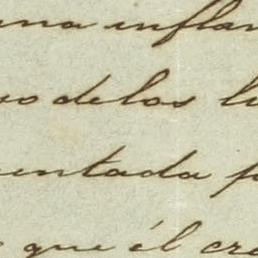 una infla
so de los l
entada p
que él cre